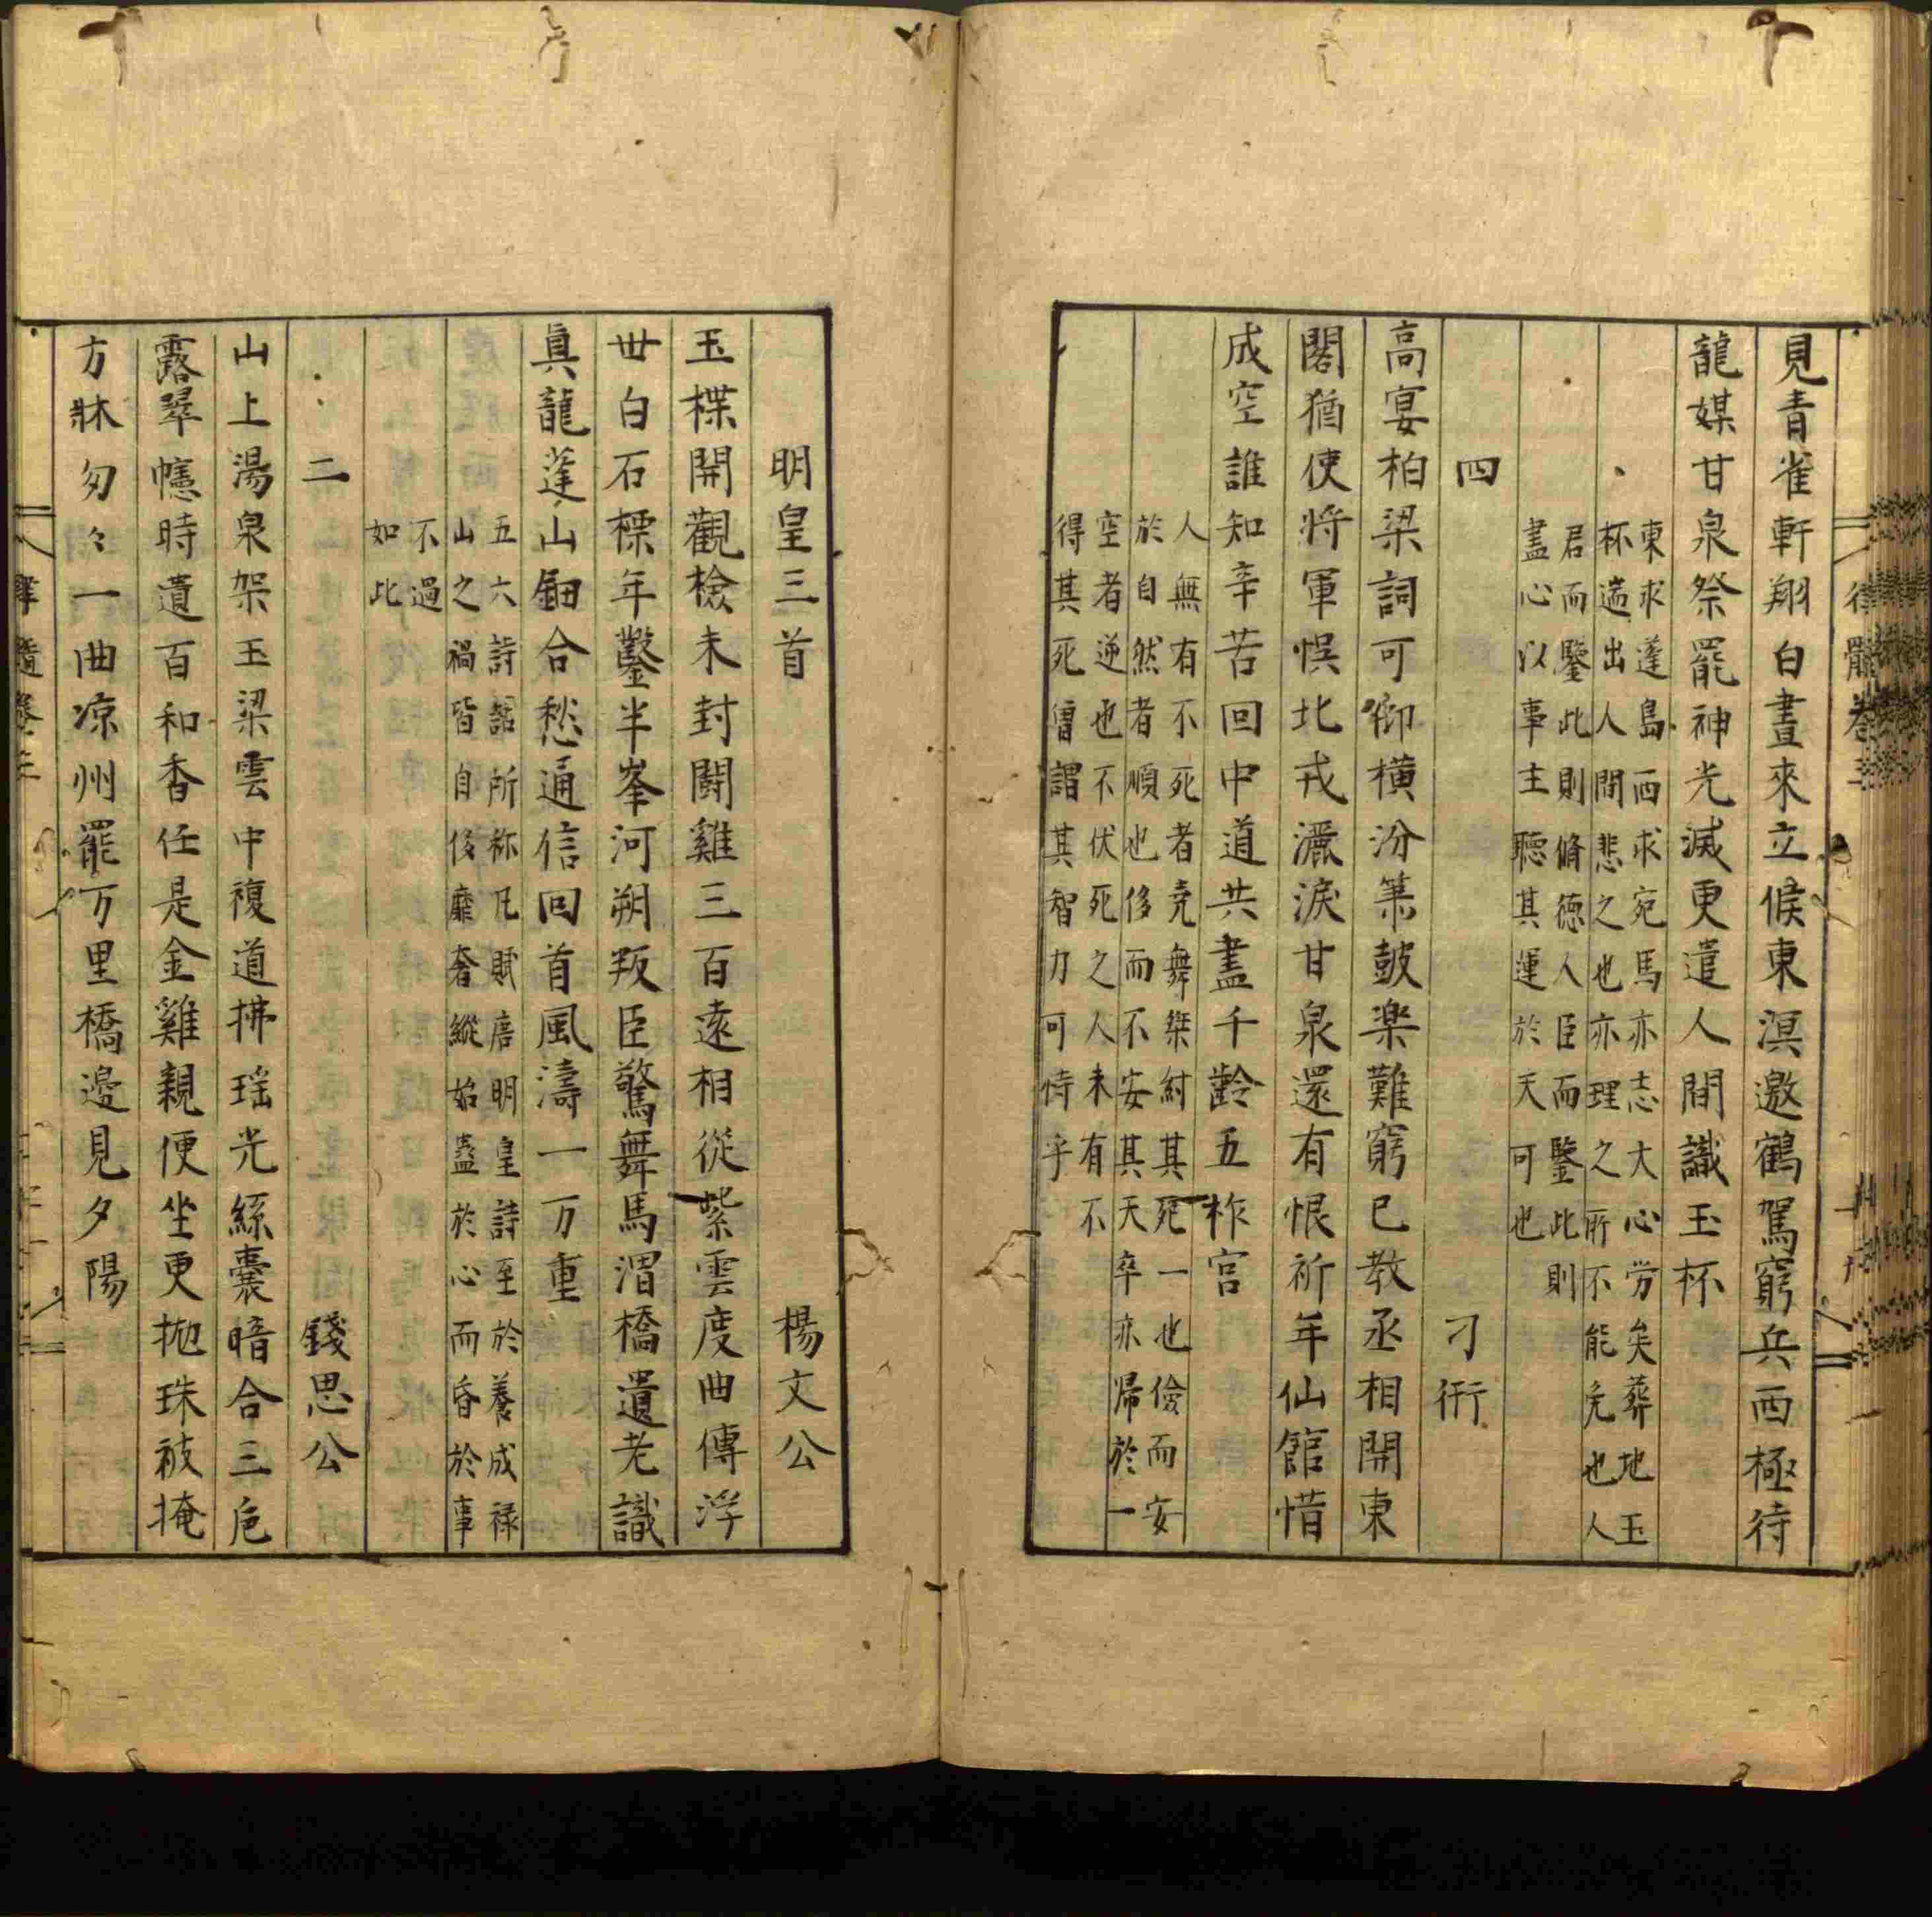 見青雀軒翔白晝來立候東溟邀鶴駕窮兵西極待
龍媒甘泉祭罷神光滅更遣人間識玉杯
東求蓬島西求宛馬亦志大心労矣葬地玉
杯遄出人間悲之也亦理之所不能免也人
君而鑒此則脩徳人臣而鑒此則
盡心以事主聽其運於天可也
四 刁衎
高宴柏梁詞可仰横汾簫鼓楽難窮已教丞相開東
閣猶使将軍悞北戎灑淚甘泉還有恨祈年仙館惜
成空誰知辛苦回中道共盡千齡五柞宫
人無有不死者尭舜桀紂其死一也儉而安
於自然者順也侈而不安其天卒亦帰於一
空者逆也不伏死之人未有不
得其死曽謂其智力可恃乎
明皇三首 楊文公
玉楪開觀檢未封闘雞三百遠相從紫雲度曲傳浮
世白石標年鑿半峯河朔叛臣驚舞馬渭橋遺老識
真龍蓬山鈿合愁通信回首風濤一万重
五六詩話所称凡賦唐明皇詩至於養成禄
山之禍皆自侈靡奢縱始蠱於心而昏於事
不過
如此
二 錢思公
山上湯泉架玉梁雲中複道拂瑶光絲嚢暗合三危
露翠幰時遺百和香任是金雞親便坐更抛珠被掩
方牀匆々一曲凉州罷万里橋邊見夕陽